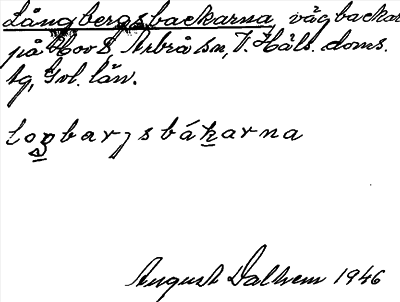 Långbergsbackarna, vägbackar
på Hov 8, Arbrå sn, V. Häls. doms.
tg, Gvl. län.
loŋbarjsbákarna
August Dalhem 1946